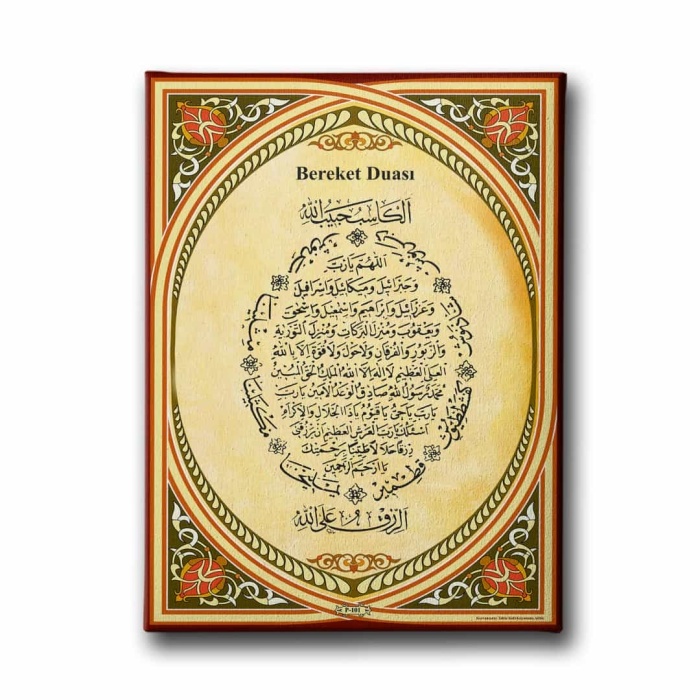 Bereket Duası
الكاسب حبيب الله
اللهم يارب
وجبرائيل وميكائيل واسرافيل
وعزرائيل وابراهيم واسمعيل واسحق
ويعقوب ومنزل البركات ومنزل التورية
والزبور والفرقان ولاحول ولاقوة الا بالله
العلي العظيم لااله الا الله الملك الحق المبين
محمد رسول الله صادق الوعد الامين يارب
يارب ياحي ياقيوم ياذا الجلال والاكرام
اسئلك يارب العرش العظيم ان ترزقني
رزقا حلالا طيبا برحمتك
يا ارحم الراحمين
يمليخا
مكثلينا
مثلينا
مرنوش
دبرنوش
شاذنوش
كفشططيوش
قطمير
الرزق على الله
P-101